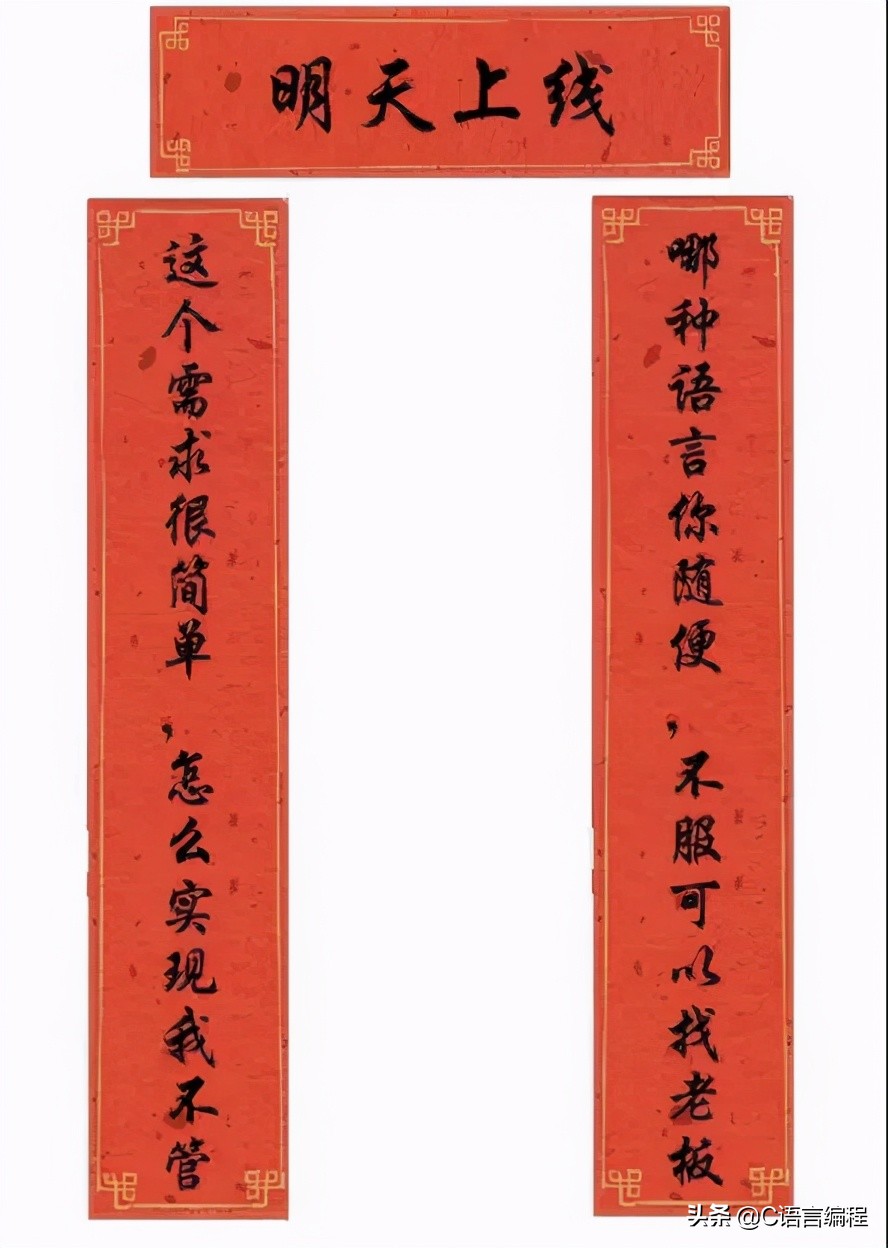 明天上线
这个需求很简单，怎么实现我不管
哪种语言你随便，不服可以找老板
头条 @C语言编程